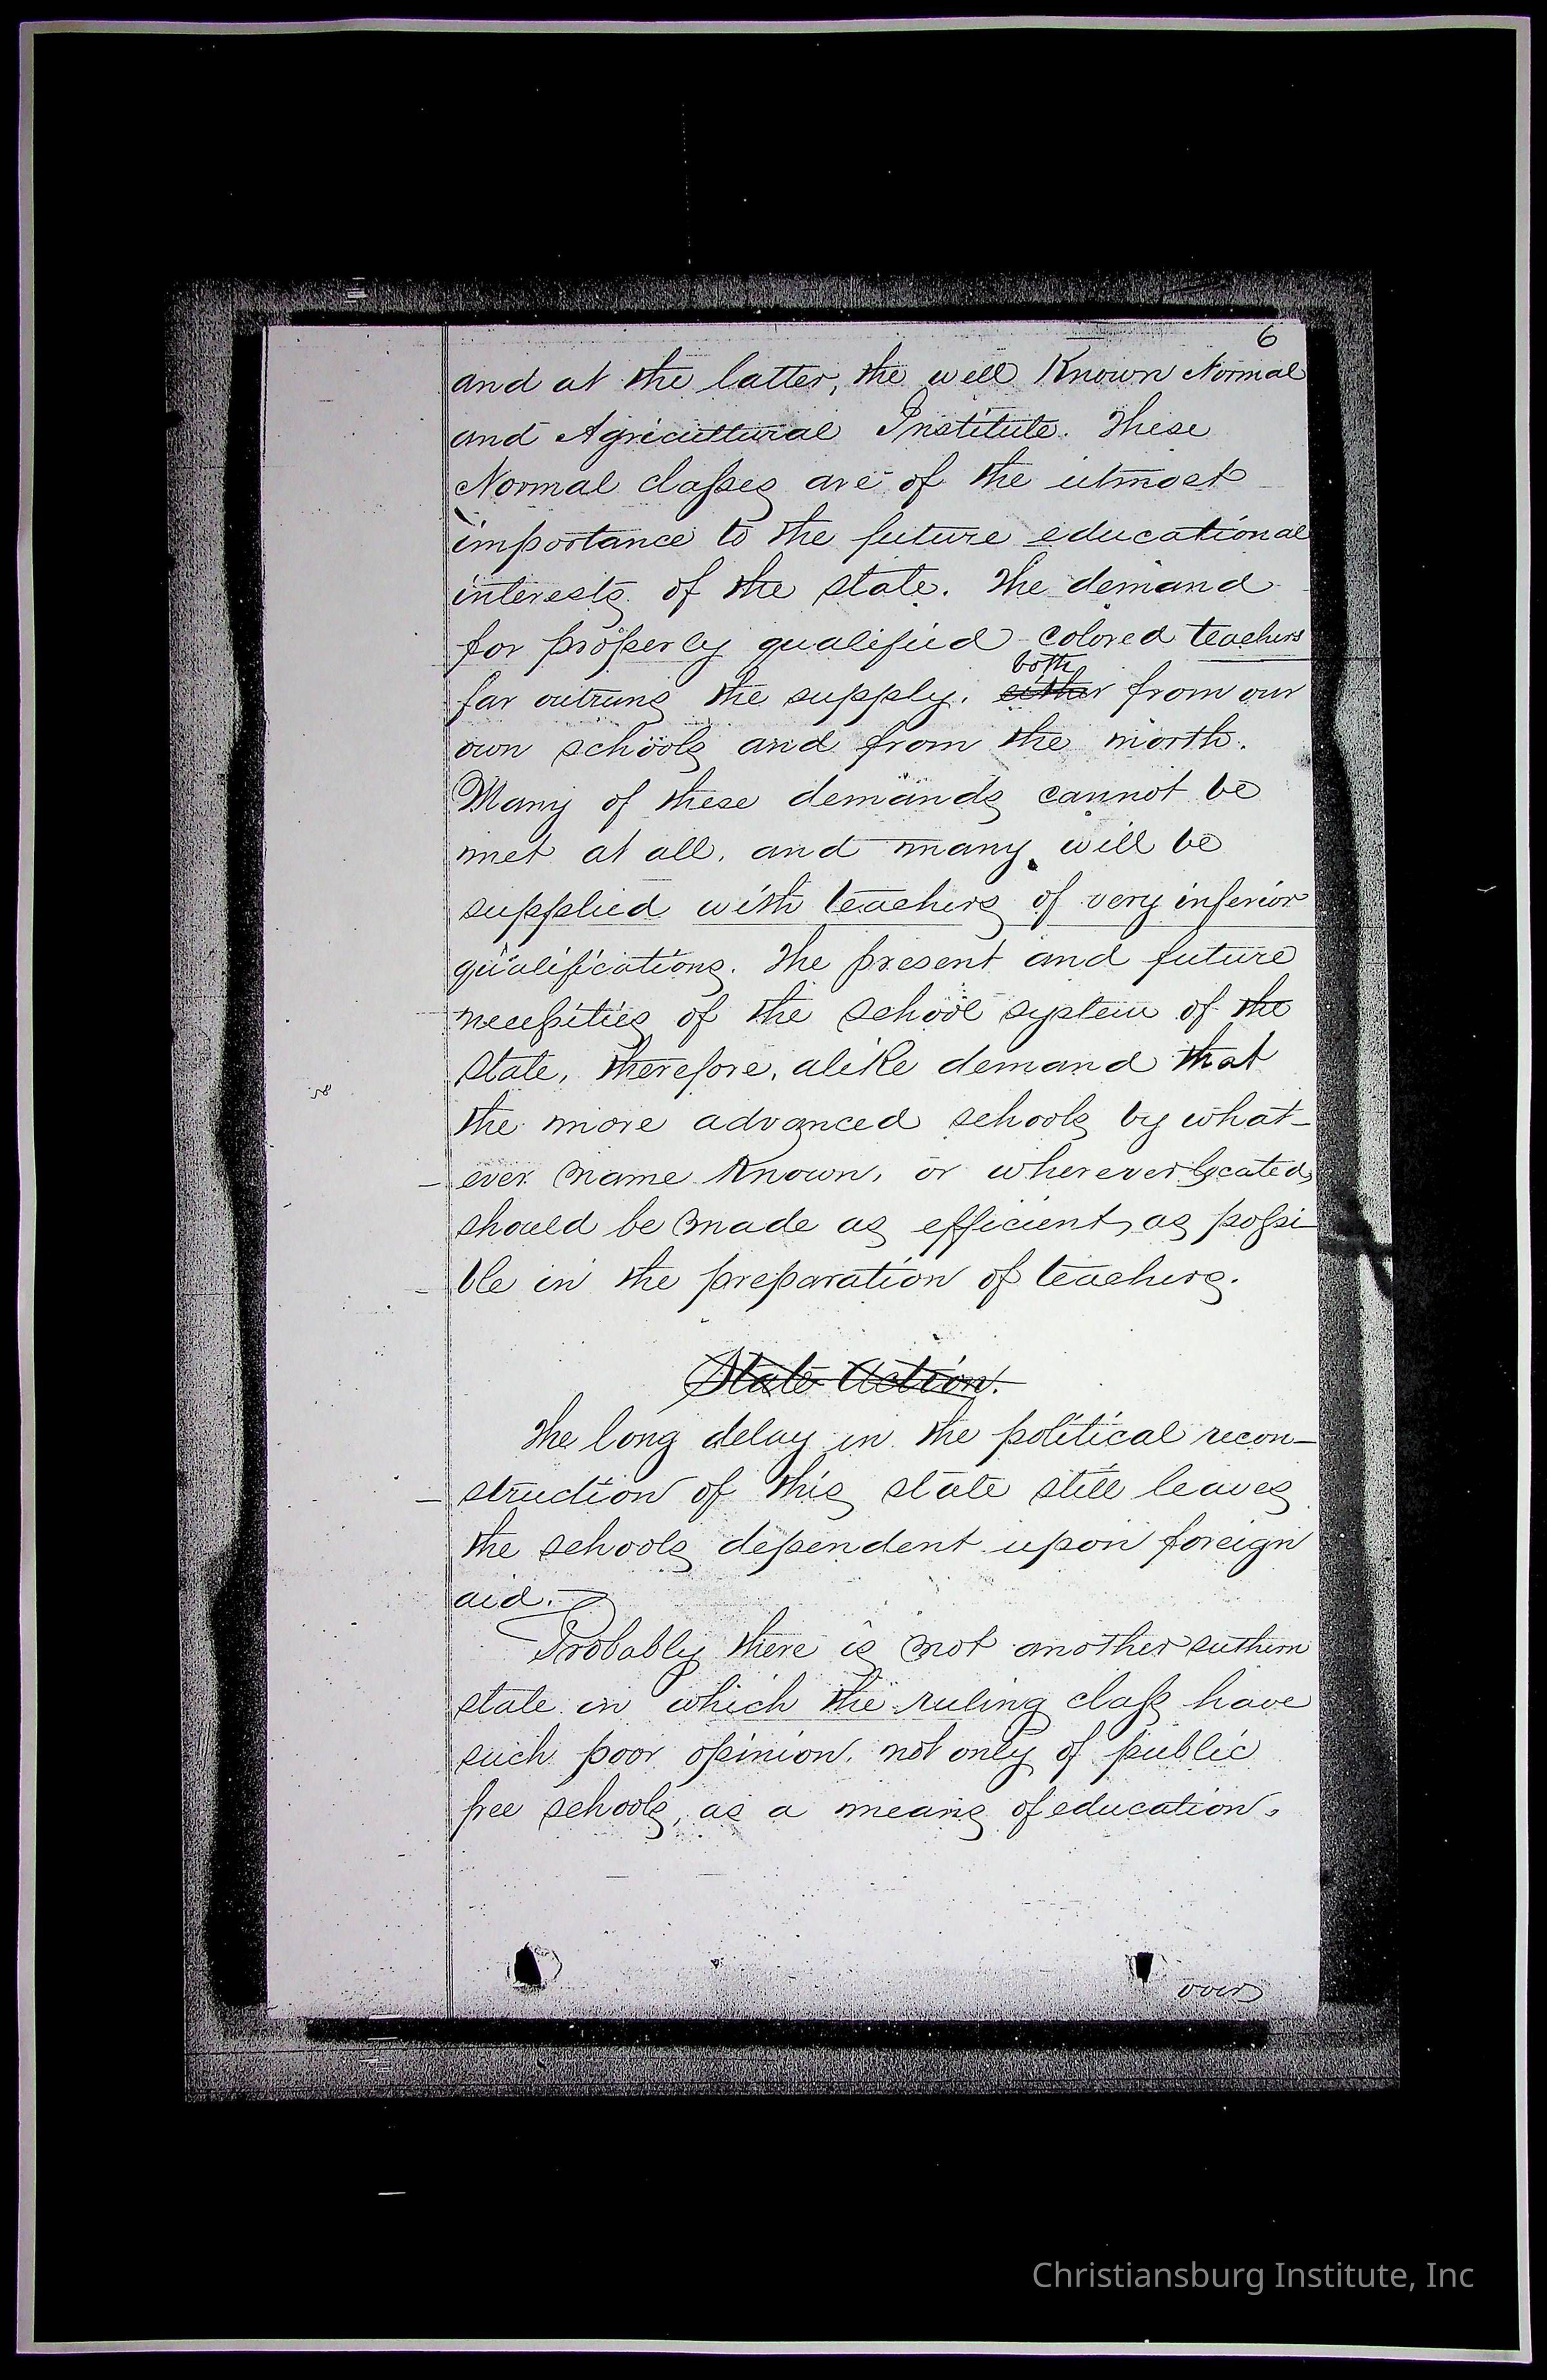 6
and at the latter, the well Known Normal
and Agricultural Institute. These
Normal classes are of the utmost
importance to the future educational
interests of the state. The demand
for properly qualified colored teachers
both
far outruns the supply, either from our
own schools and from the north.
Many of these demands cannot be
met at all, and many will be
supplied with teachers of very inferior
qualifications. The present and future
necessities of the school system of the
state, therefore, alike demand that
the more advanced schools by what-
ever name known, or wherever located,
should be made as efficient, as possi-
ble in the preparation of teachers.
State Action.
The long delay in the political recon-
struction of this state still leaves
the schools dependent upon foreign
aid.
Probably there is not another suthern
state in which the ruling class have
such poor opinion, not only of public
free schools, as a means of education,
over
Christiansburg Institute, Inc